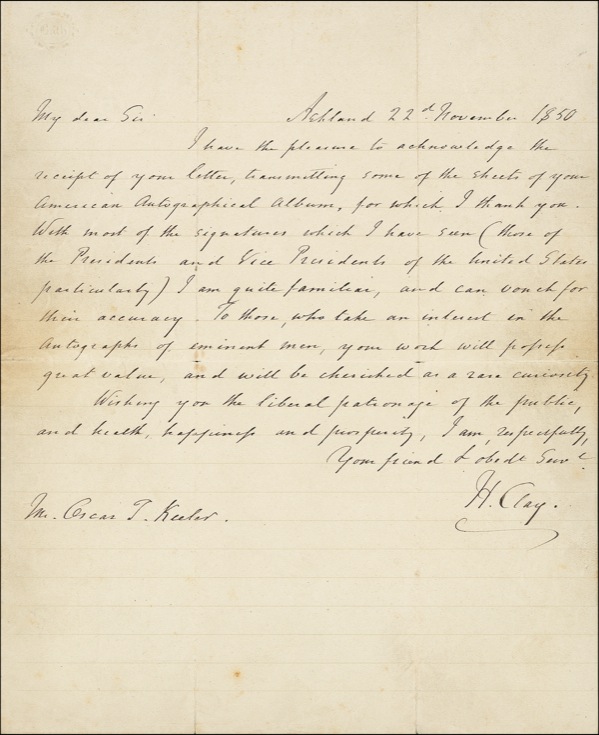 My dear Sir Ashland 22d November 1850
I have the pleasure to acknowledge the
receipt of your letter, transmitting some of the sheets of your
American Autographical Album, for which I thank you.
With most of the signatures which I have seen (those of
the Presidents and Vice Presidents of the United States
particularly) I am quite familiar, and can vouch for
their accuracy. To those, who take an interest in the
Autographs of eminent men, your work will possess
great value, and will be cherished as a rare curiosity.
Wishing you the liberal patronage of the public,
and health, happiness and prosperity, I am, respectfully,
Your friend & obedt Servt
H. Clay.
Mr. Oscar T. Keeler.